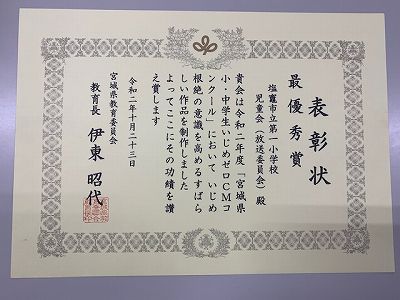 表彰状
最優秀賞
塩竈市立第一小学校
児童会(放送委員会)殿
貴会は令和二年度「宮城県
小・中学生いじめゼロCMコ
ンクール」において いじめ
根絶の意識を高めるすばら
しい作品を制作しました
よってここにその功績を讃
え賞します
令和二年十月二十三日
宮城県教育委員会
教育長 伊東昭代